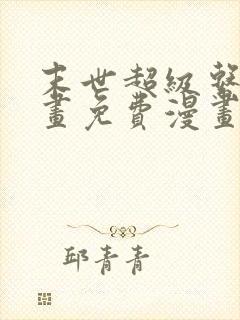 末世超級
畫免費漫畫
邱青青